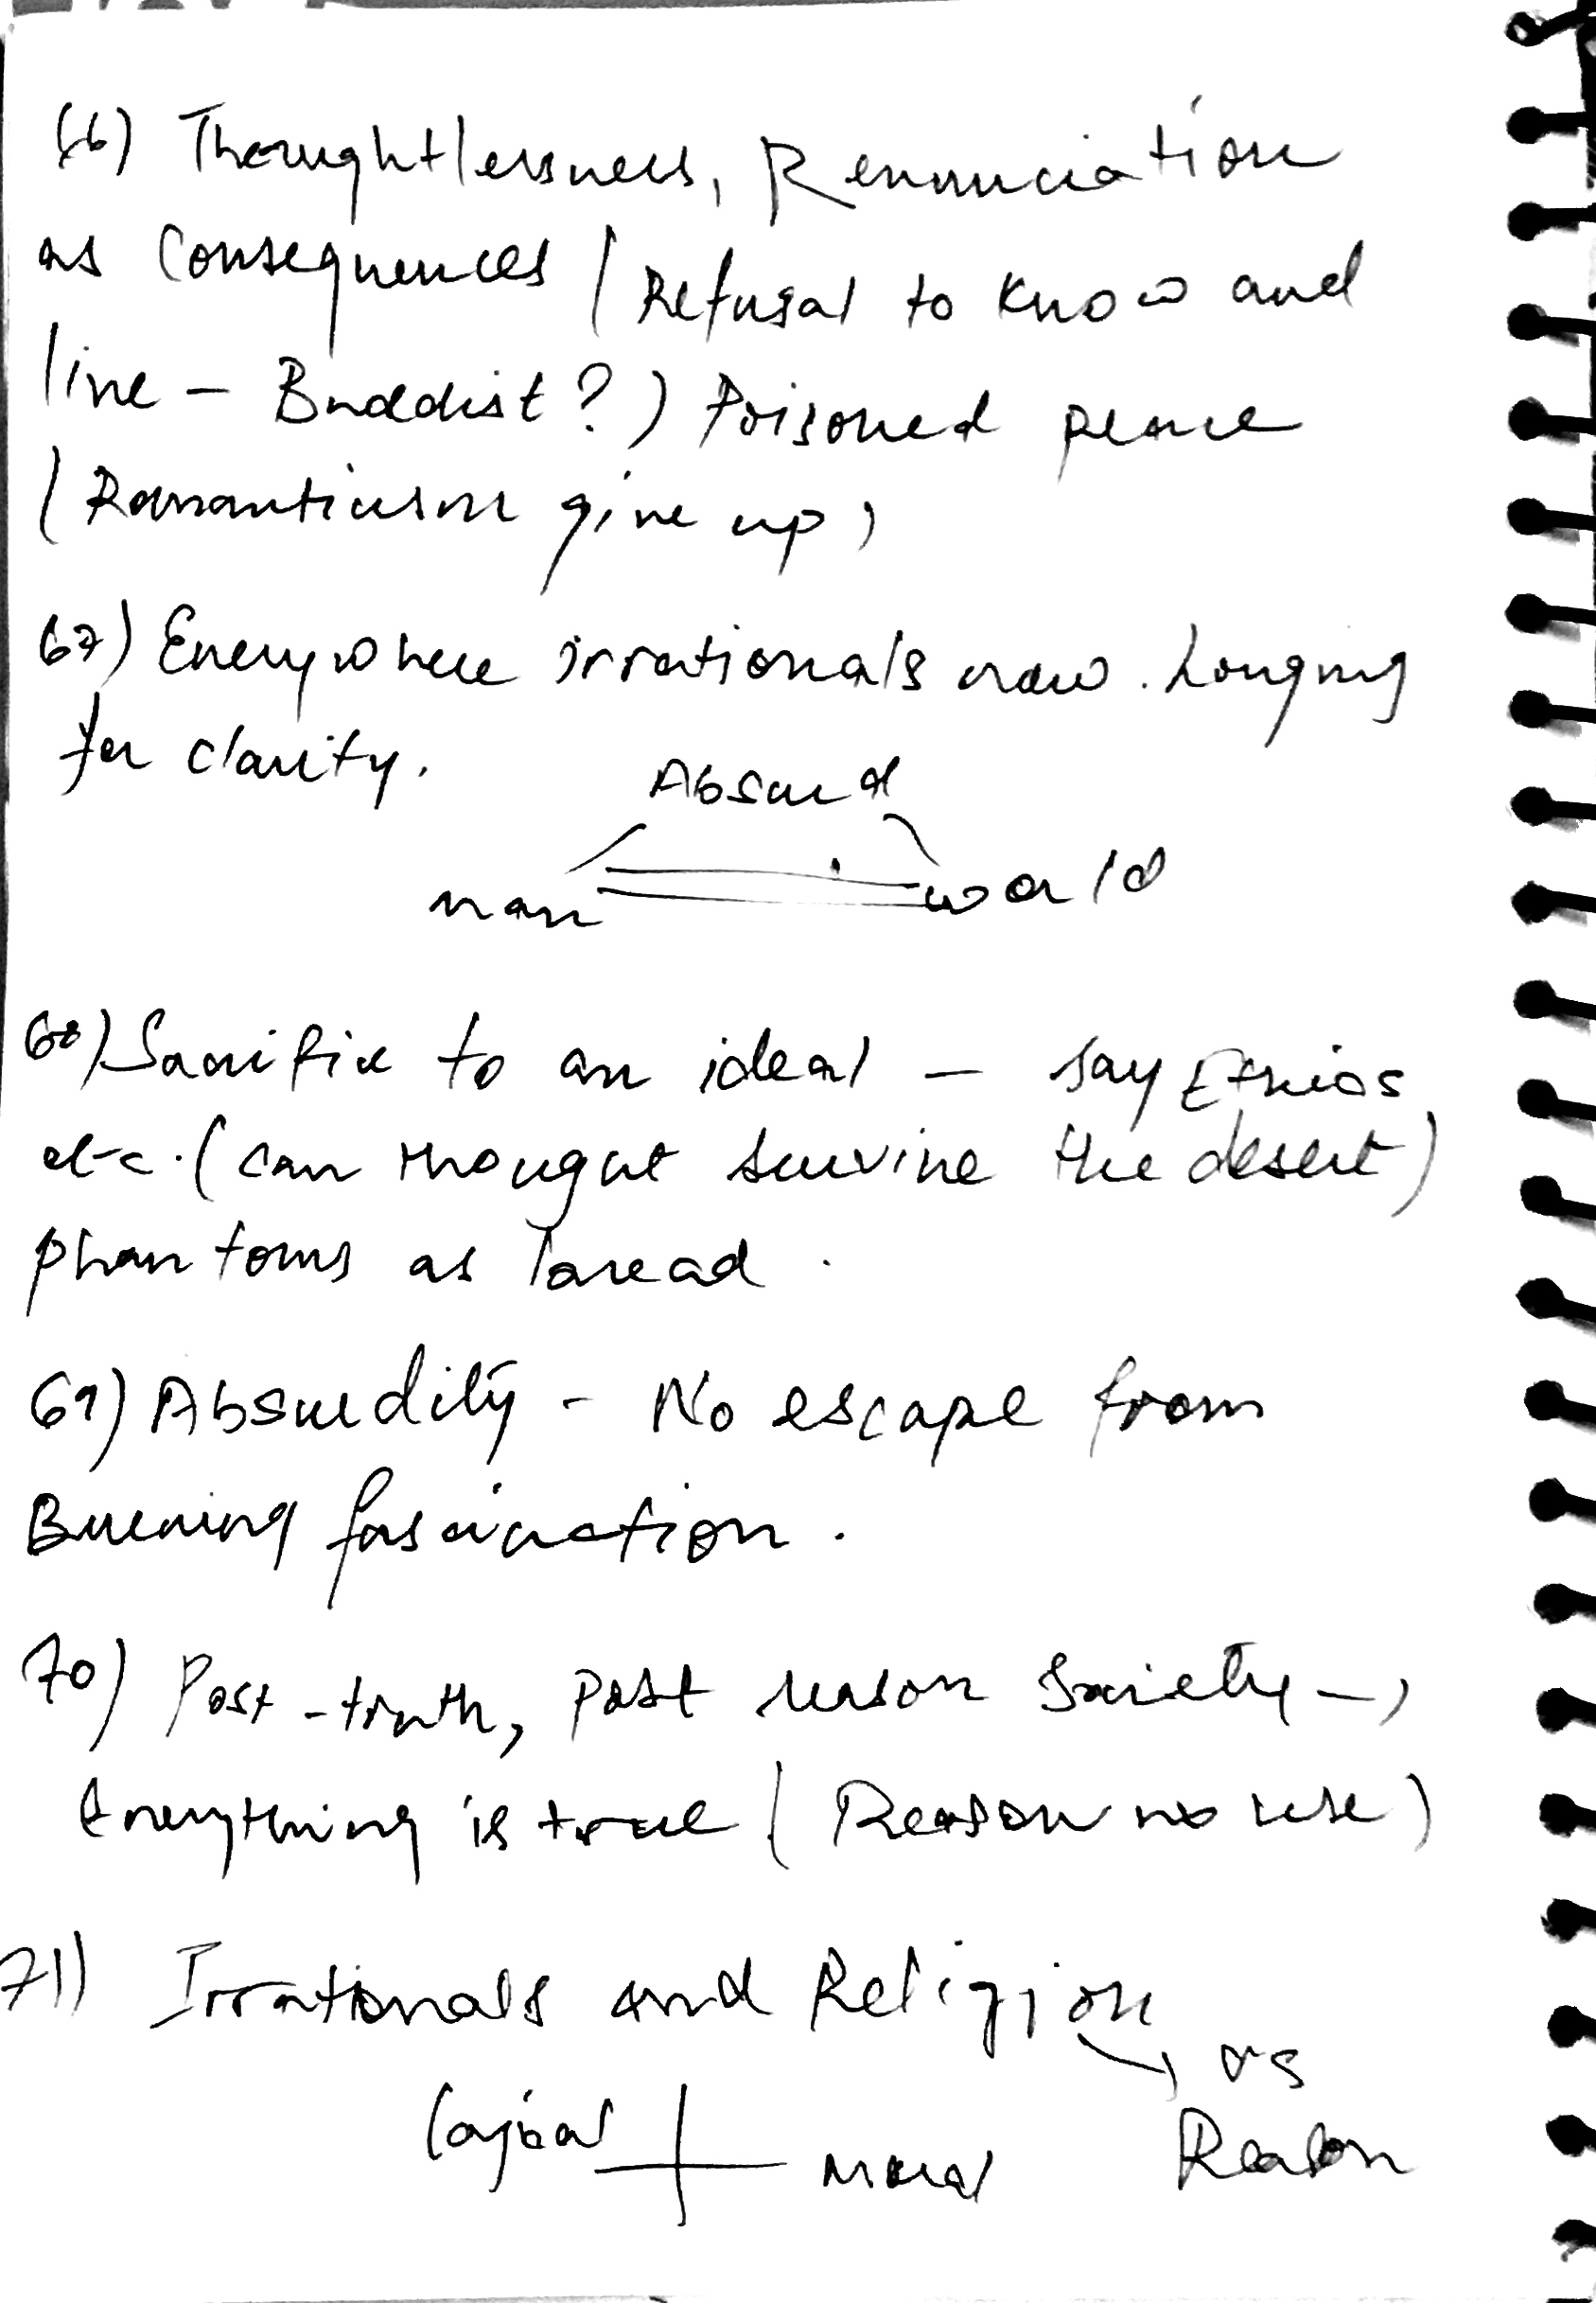 66) Thoughtlessness, Renunciation
as consequences (Refusal to know and
live - Buddist?) Poisoned peace
(Romanticism give up)
67) Everywhere irrationals now. Longing
for clarity.
Absurd
man world
68) Sacrifice to an ideal - say Ethics
etc. (can thought survive the desert)
phantoms as bread.
69) Absurdity - No escape from
Burning fascination.
70) Post-truth, post reason society -,
Everything is true (Reason no use)
71) Irrationals and Religion
vs
logical + moral Reason